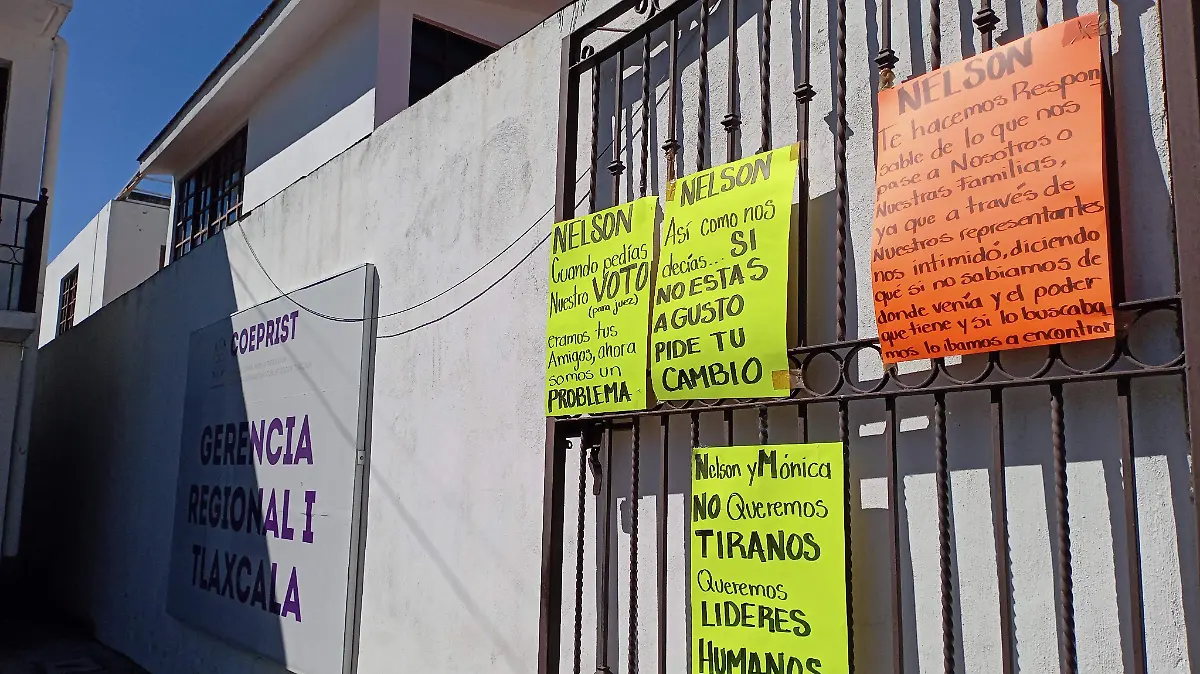 COEPRIST
GERENCIA
REGIONAL I
TLAXCALA
NELSON
Cuando pedías
Nuestro VOTO
(para juez)
eramos tus
Amigos, ahora
somos un
PROBLEMA
NELSON
Así como nos
decías... SI
NO ESTAS
A GUSTO
PIDE TU
CAMBIO
NELSON
Te hacemos Respon
sable de lo que nos
pase a Nosotros o
Nuestras Familias,
ya que a través de
Nuestros representantes
nos intimidó, diciendo
qué si no sabiamos de
donde venía y el poder
que tiene y si lo buscaba
mos lo ibamos a encontrar
Nelson y Mónica
NO Queremos
TIRANOS
Queremos
LIDERES
HUMANOS